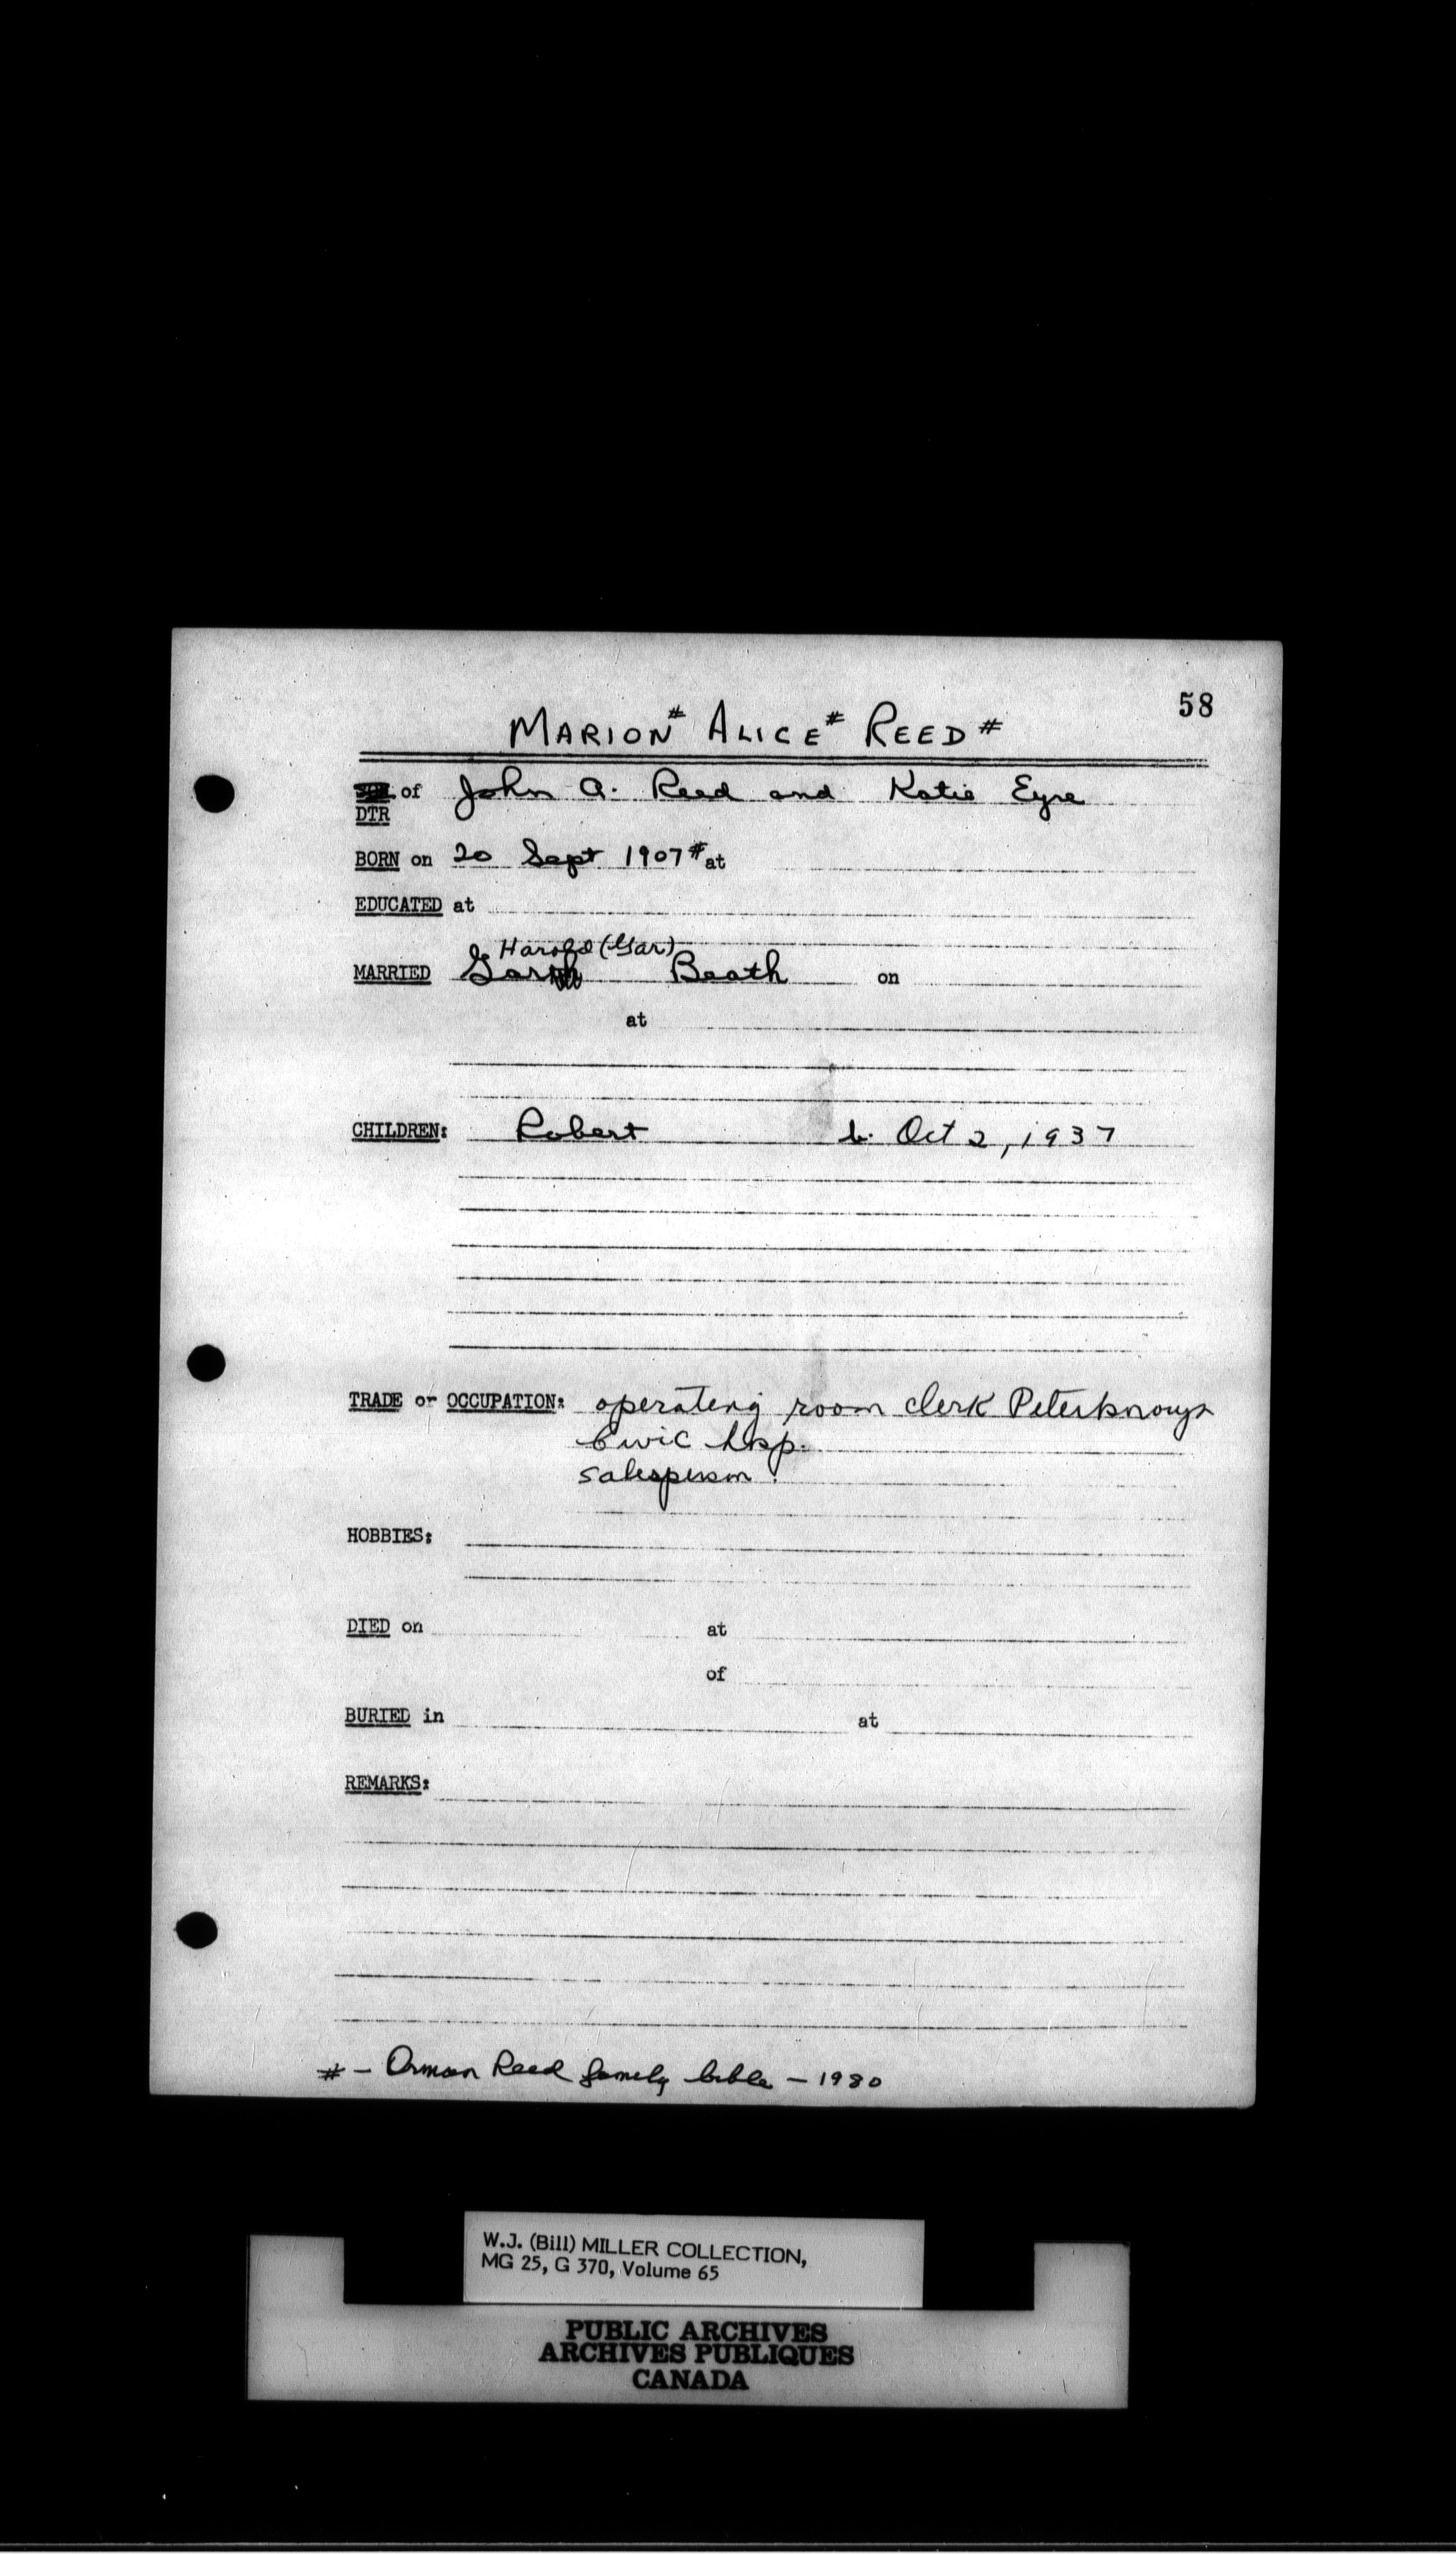 58
MARION# ALICE# REED#
SON of John A. Reed and Katie Eyre
DTR
BORN on 20 Sept 1907# at
EDUCATED at
Harold (Gar)
MARRIED Garth Beath on
at
CHILDREN: Robert b. Oct 2, 1937
TRADE or OCCUPATION: operating room clerk Peterborough
Civic hosp.
salesperson.
HOBBIES:
DIED on at
of
BURIED in at
REMARKS:
# - Orman Reed family bible - 1980
W.J. (Bill) MILLER COLLECTION,
MG 25, G 370, Volume 65
PUBLIC ARCHIVES
ARCHIVES PUBLIQUES
CANADA